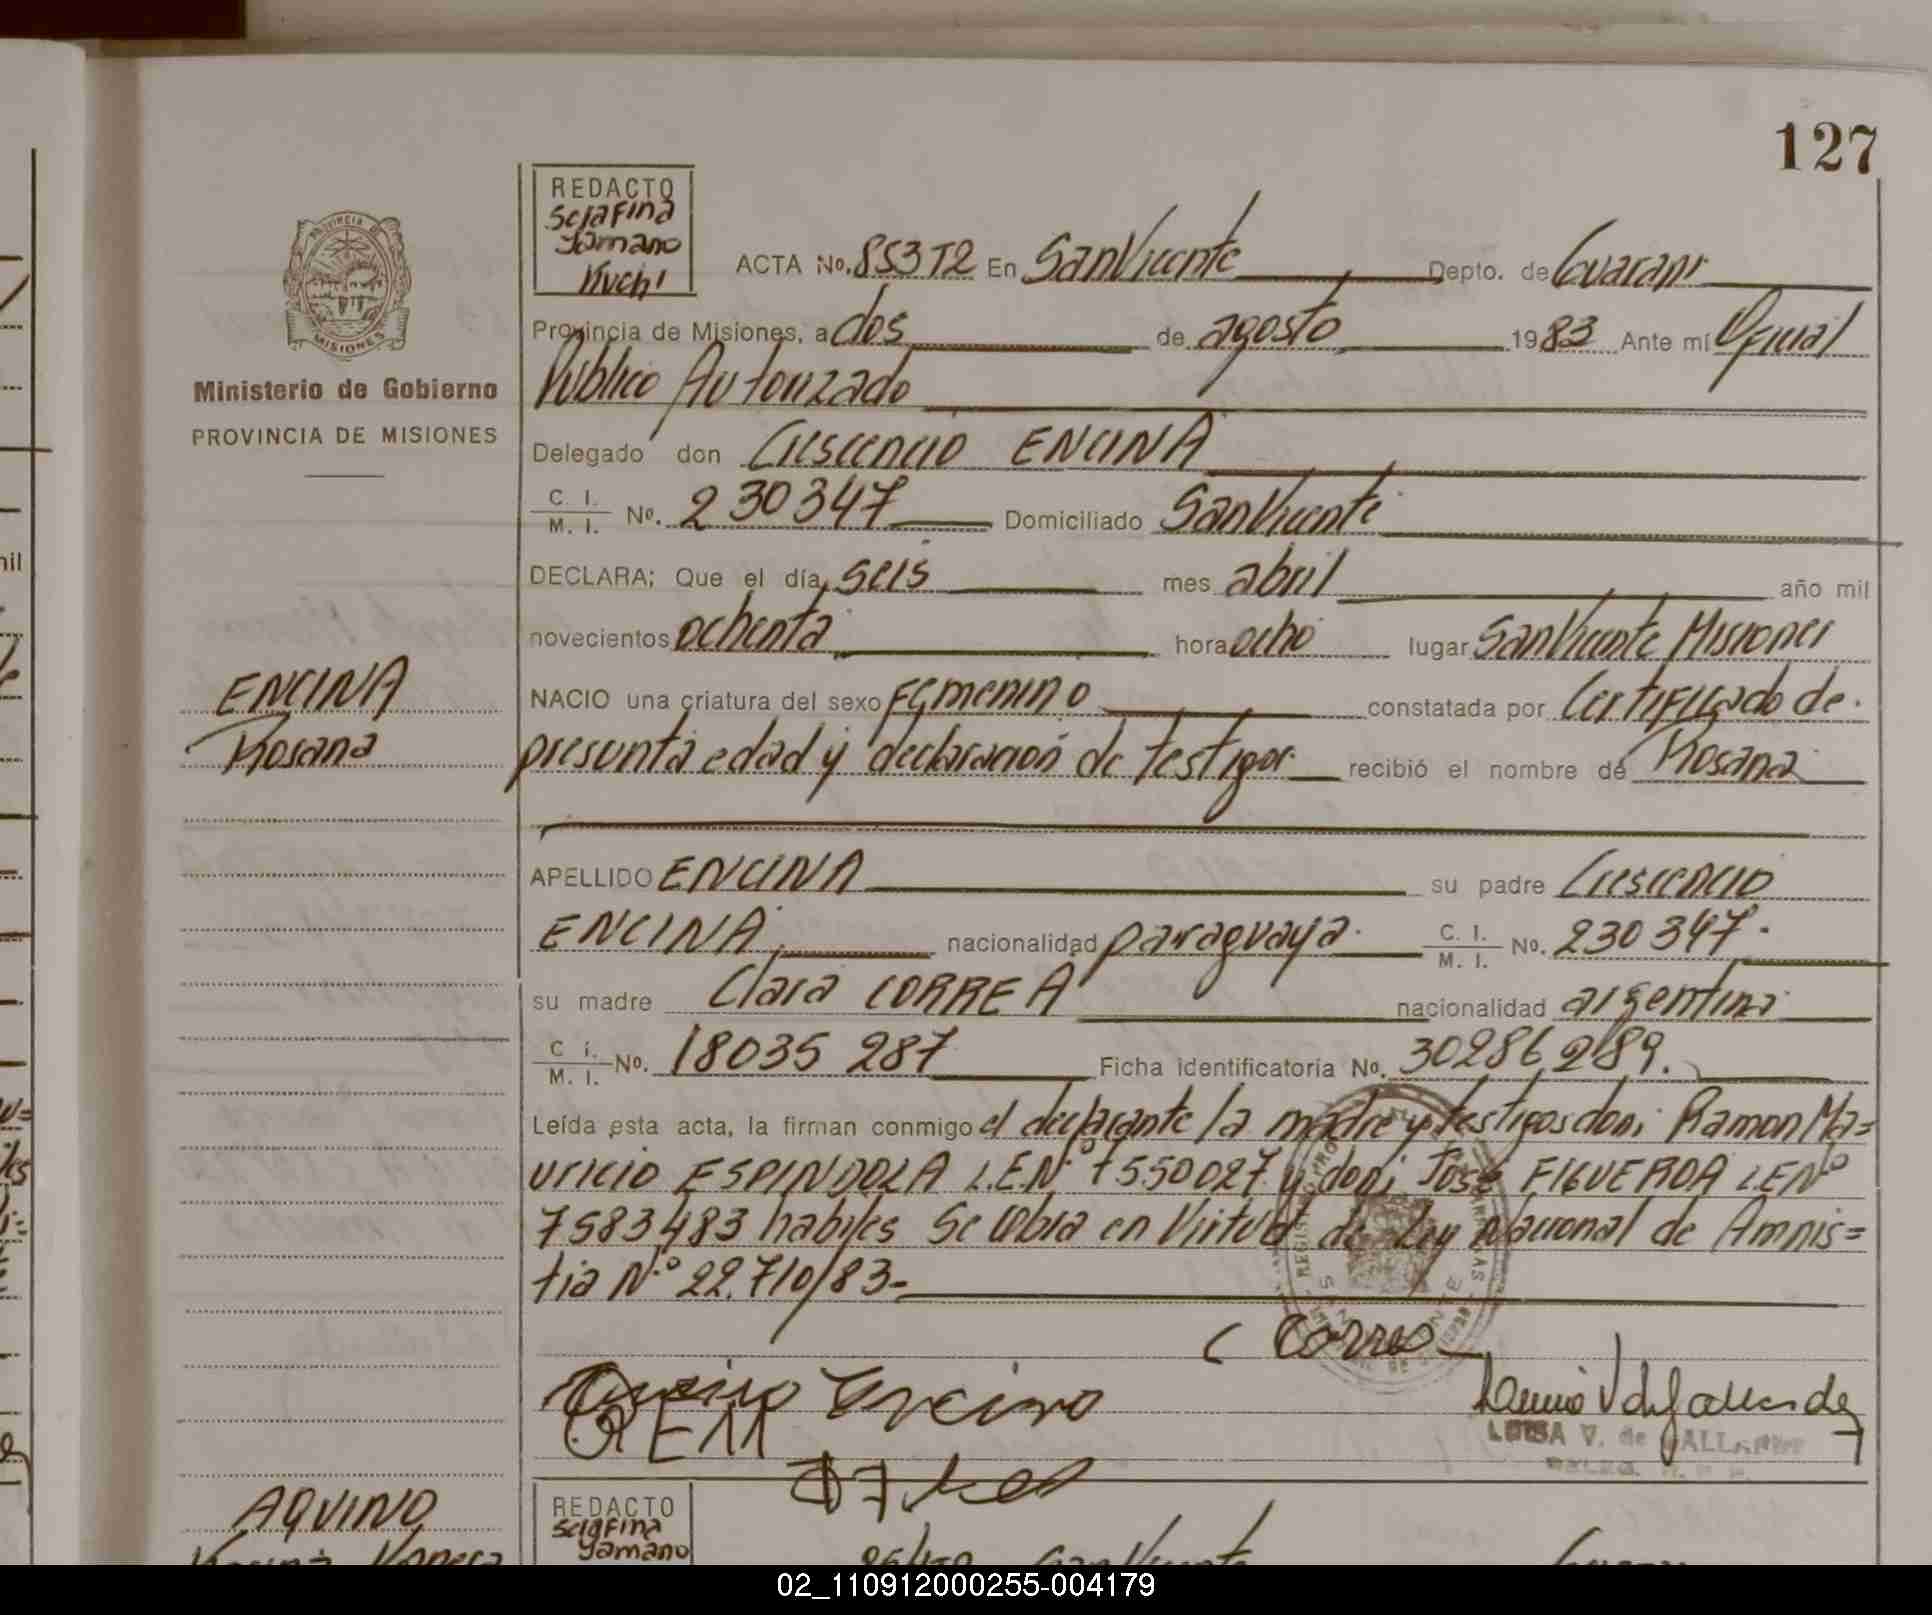 127
REDACTO
Serafina
Yamano
Kuchi
ACTA No. 853T2 En San Vicente Depto. de Guarani
Provincia de Misiones, a dos de agosto 1983 Ante mí Oficial
Publico Autorizado
Ministerio de Gobierno
PROVINCIA DE MISIONES
Delegado don Cresencio ENCINA
C. I. M. I. No. 230347 Domiciliado San Vicente
DECLARA; Que el día, seis mes abril año mil
novecientos ochenta hora ocho lugar San Vicente Misiones
ENCINA
Rosana
NACIO una criatura del sexo Femenino constatada por Certificado de
presunta edad y declaracion de testigos recibió el nombre de Rosana
APELLIDO ENCINA su padre Cresencio
ENCINA nacionalidad paraguaya C. I. M. I. No. 230347.
su madre Clara CORREA nacionalidad argentina
C i. M. I. No. 18035287 Ficha identificatoria No. 30286289.
Leída esta acta, la firman conmigo el declarante la madre y testigos don: Ramon Ma=
uricio ESPINDOLA L.E.Nº 7550027 y don: José FIGUEROA L E Nº
7583483 habiles Se labra en Virtud de Ley Nacional de Amnis=
tia Nº 22.710/83-
C Correa
LUISA V. de GALL
AQUINO
REDACTO
Serafina
Yamano
02_110912000255-004179